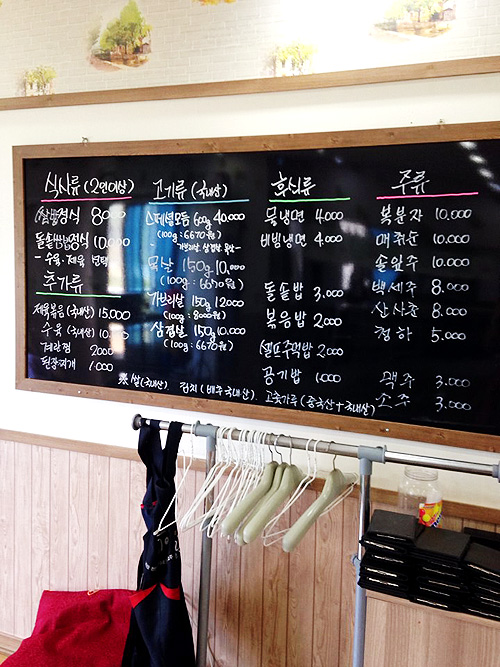 식사류 (2인이상)
쌈밥정식 8000
돌솥쌈밥정식 10.000
- 수육. 제육 선택
추가류
제육볶음 (국내산) 15.000
수육 (국내산) 10.000
계란찜 2000
된장찌개 1.000
고기류 (국내산)
스페셜모듬 600g 40.000
(100g : 6670원)
- 가브리살, 삼겹살, 목살 -
목살 150g 10.000
(100g : 6670원)
가브리살 150g 12000
(100g : 8000원)
삼겹살 150g 10.000
(100g : 6670원)
후식류
물냉면 4000
비빔냉면 4000
돌솥밥 3.000
볶음밥 2000
셀프주먹밥 2000
공기밥 1.000
주류
복분자 10.000
매취순 10.000
솔잎주 10.000
백세주 8.000
산사춘 8.000
청하 5.000
맥주 3.000
소주 3.000
※ 쌀 (국내산) 김치 (배추 국내산, 고춧가루 (중국산+국내산)